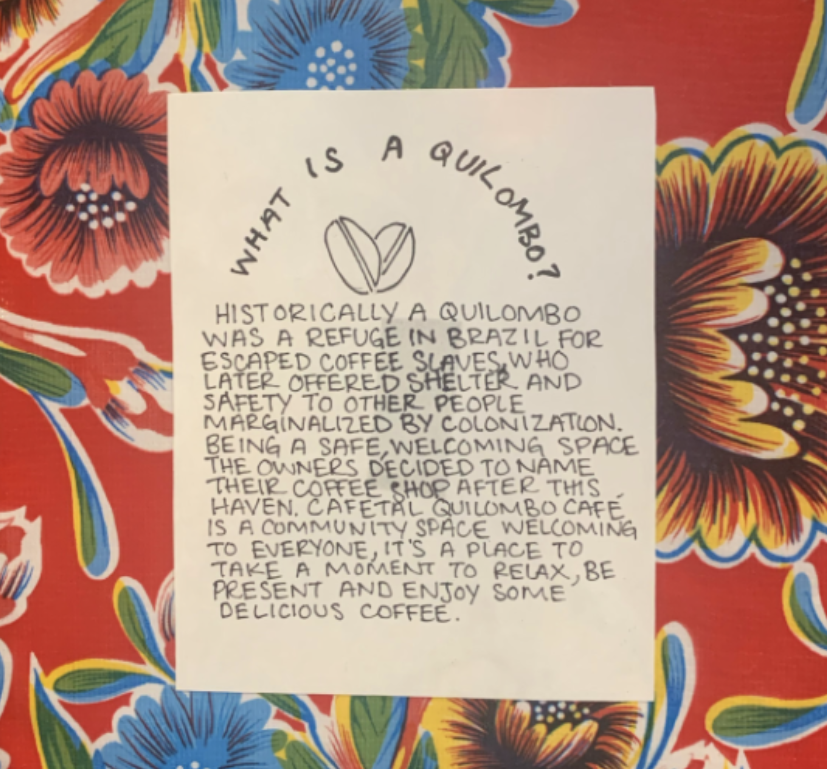 WHAT IS A QUILOMBO?
HISTORICALLY A QUILOMBO
WAS A REFUGE IN BRAZIL FOR
ESCAPED COFFEE SLAVES, WHO
LATER OFFERED SHELTER AND
SAFETY TO OTHER PEOPLE
MARGINALIZED BY COLONIZATION.
BEING A SAFE, WELCOMING SPACE
THE OWNERS DECIDED TO NAME
THEIR COFFEE SHOP AFTER THIS
HAVEN. CAFETAL QUILOMBO CAFE
IS A COMMUNITY SPACE WELCOMING
TO EVERYONE, IT'S A PLACE TO
TAKE A MOMENT TO RELAX, BE
PRESENT AND ENJOY SOME
DELICIOUS COFFEE.